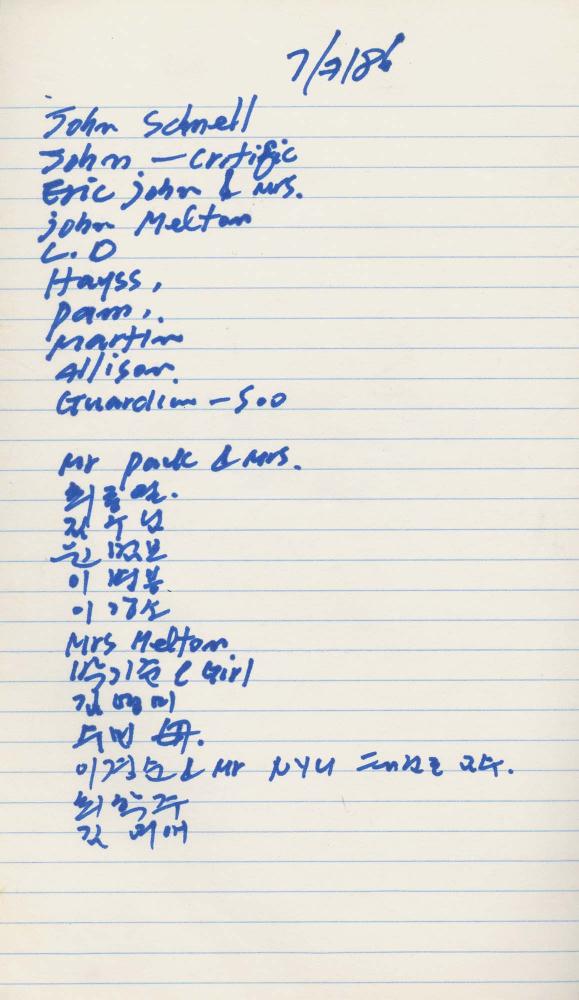 7/7/86
John Schnell
John — Critific
Eric john & Mrs.
john Melton
L. D
Hayss,
Pam,.
Martin
Allison.
Guardian - Soo
Mr Park & Mrs.
최
김수남
이병봉
이경수
Mrs Melton
박기준 & Girl
김명미
이경순 & Mr NYU 교수.
최학주
김미애